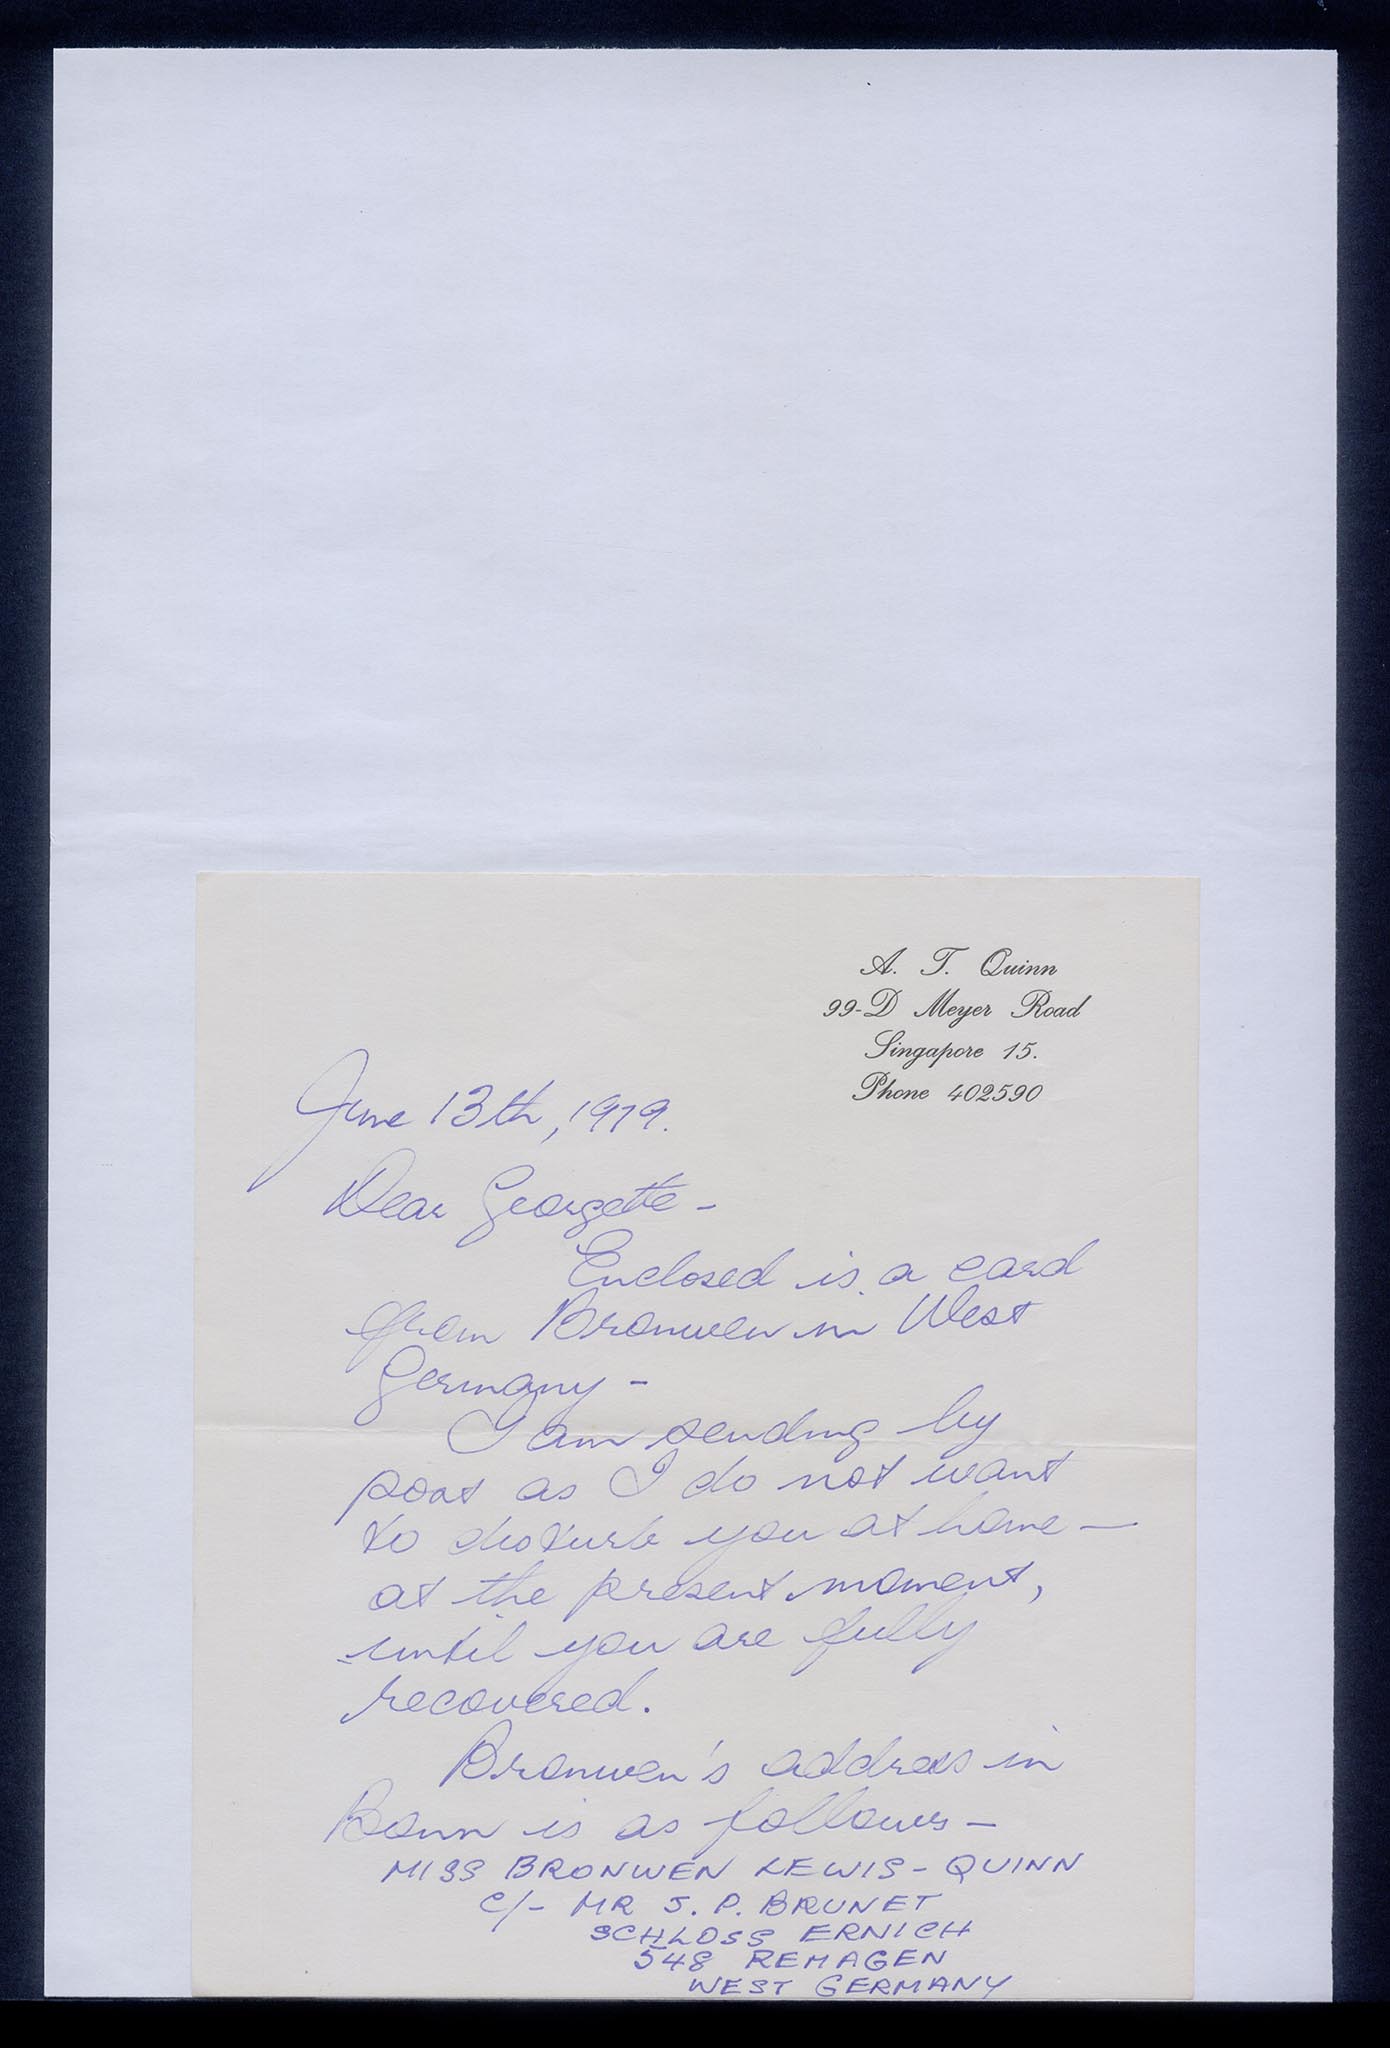 A. T. Quinn
99-D Meyer Road
Singapore 15.
Phone 402590
June 13th, 1979.
Dear Georgette -
Enclosed is a card
from Bronwen in West
Germany -
I am sending by
post as I do not want
to disturb you at home —
at the present moment,
until you are fully
recovered.
Bronwen's address in
Bonn is as follows —
MISS BRONWEN LEWIS-QUINN
C/- MR J. P. BRUNET
SCHLOSS ERNICH
548 REMAGEN
WEST GERMANY